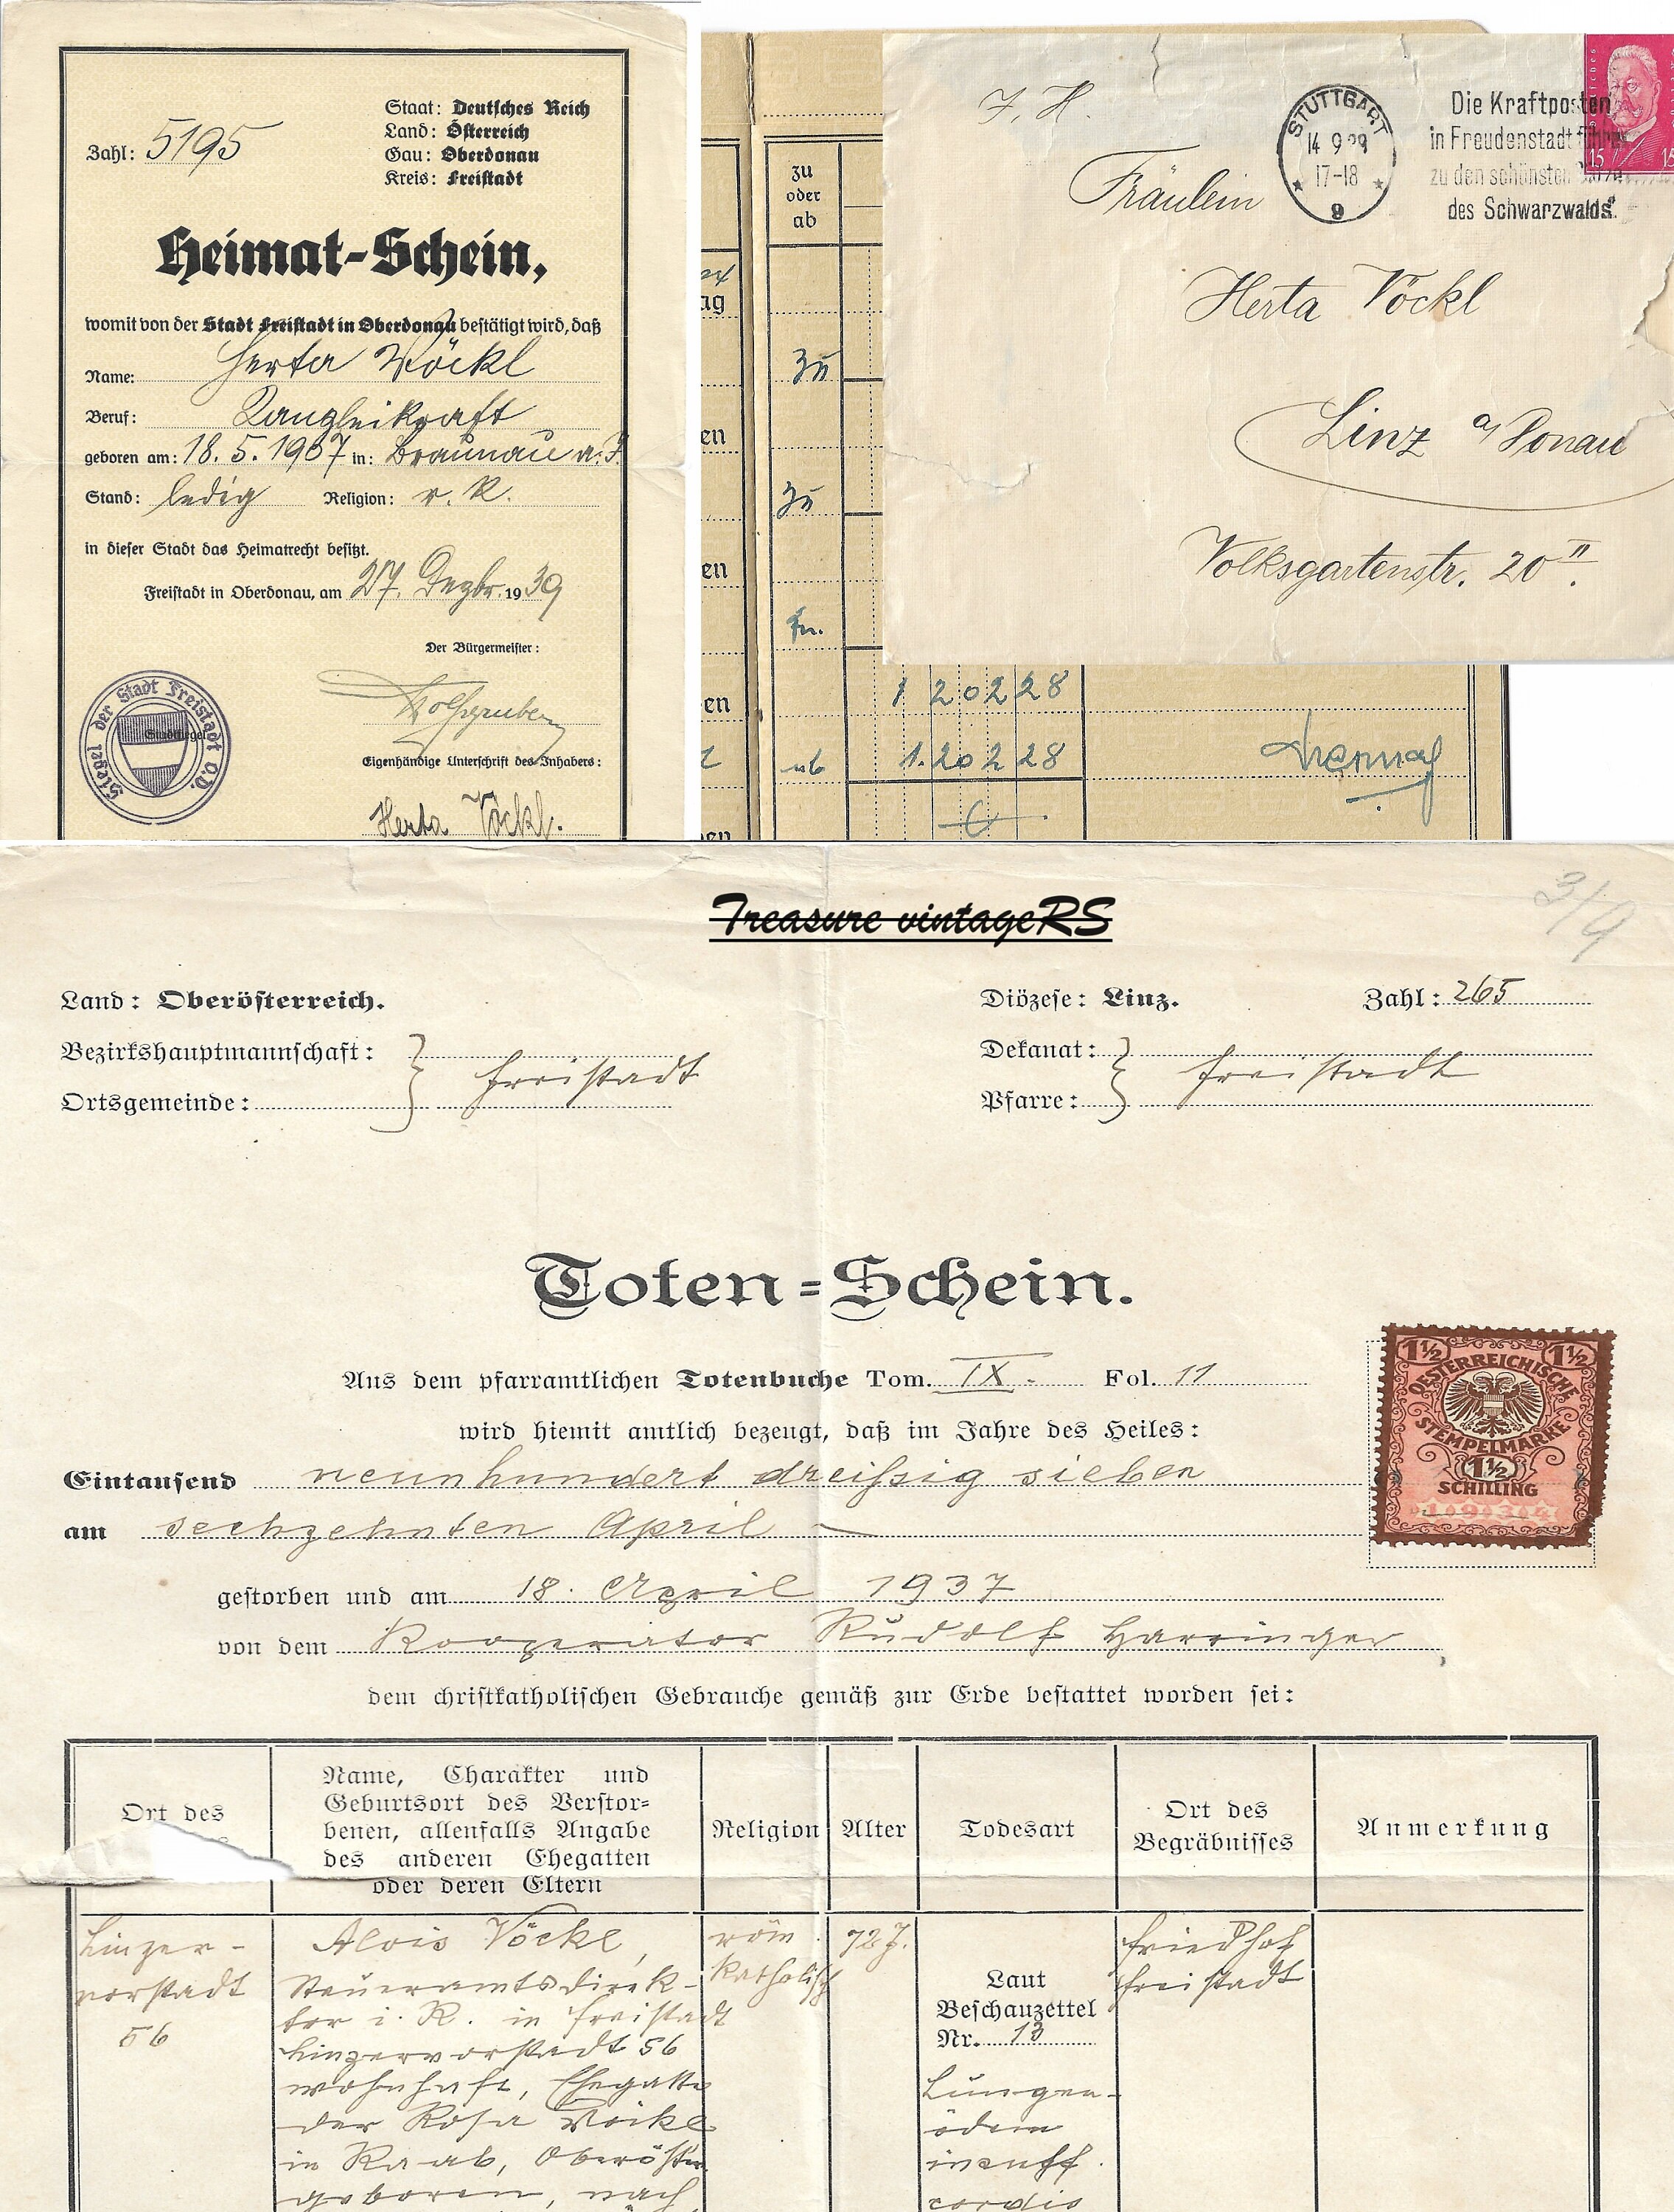 Staat: Deutsches Reich
Land: Österreich
Gau: Oberdonau
Kreis: Freistadt
Zahl: 5195
Heimat-Schein,
womit von der Stadt Freistadt in Oberdonau bestätigt wird, daß
Name: Herta Vöckl
Beruf: Kanzleikraft
geboren am: 18.5.1907 in: Braunau a. I.
Stand: ledig Religion: r. k.
in dieser Stadt das Heimatrecht besitzt.
Freistadt in Oberdonau, am 27. Dezbr. 1939
Der Bürgermeister:
Siegel der Stadt Freistadt O.D.
Stadtsiegel
Eigenhändige Unterschrift des Inhabers:
Herta Vöckl.
zu
oder
ab
ag
zu
en
zu
en
en
1 20 2 28
ab 1.20 2 28
en
F. H.
Fräulein
Herta Vöckl
Linz a/Donau
Volksgartenstr. 20 II.
STUTTGART
14 9 29
17-18
9
Die Kraftposten
in Freudenstadt führen
zu den schönsten
des Schwarzwalds"
15 15
Treasure vintageRS
3/9
Land: Oberösterreich.
Diözese: Linz. Zahl: 265
Bezirkshauptmannschaft:
Ortsgemeinde: } Freistadt
Dekanat:
Pfarre: } Freistadt
Toten=Schein.
Aus dem pfarramtlichen Totenbuche Tom. IX. Fol. 11
wird hiemit amtlich bezeugt, daß im Jahre des Heiles:
Eintausend neunhundert dreißig sieben
am sechzehnten April
gestorben und am 18. April 1937
von dem Kooperator Rudolf Harringer
dem christkatholischen Gebrauche gemäß zur Erde bestattet worden sei:
1½ 1½
OESTERREICHISCHE
STEMPELMARKE
1½
SCHILLING
1934
Ort des
Name, Charakter und
Geburtsort des Verstor-
benen, allenfalls Angabe
des anderen Ehegatten
oder deren Eltern
Religion
Alter
Todesart
Ort des
Begräbnisses
Anmerkung
Linzer-
vorstadt
56
Alois Vöckl,
Steueramtsdirek-
tor i. R. in Freistadt
Linzervorstadt 56
wohnhaft, Ehegatte
der Rosa Vöckl
in Raab, Oberöster.
geboren, nach
röm.
katholisch
72 J.
Laut
Beschauzettel
Nr. 13
Lungen-
ödem
insuff.
cordis
Friedhof
Freistadt